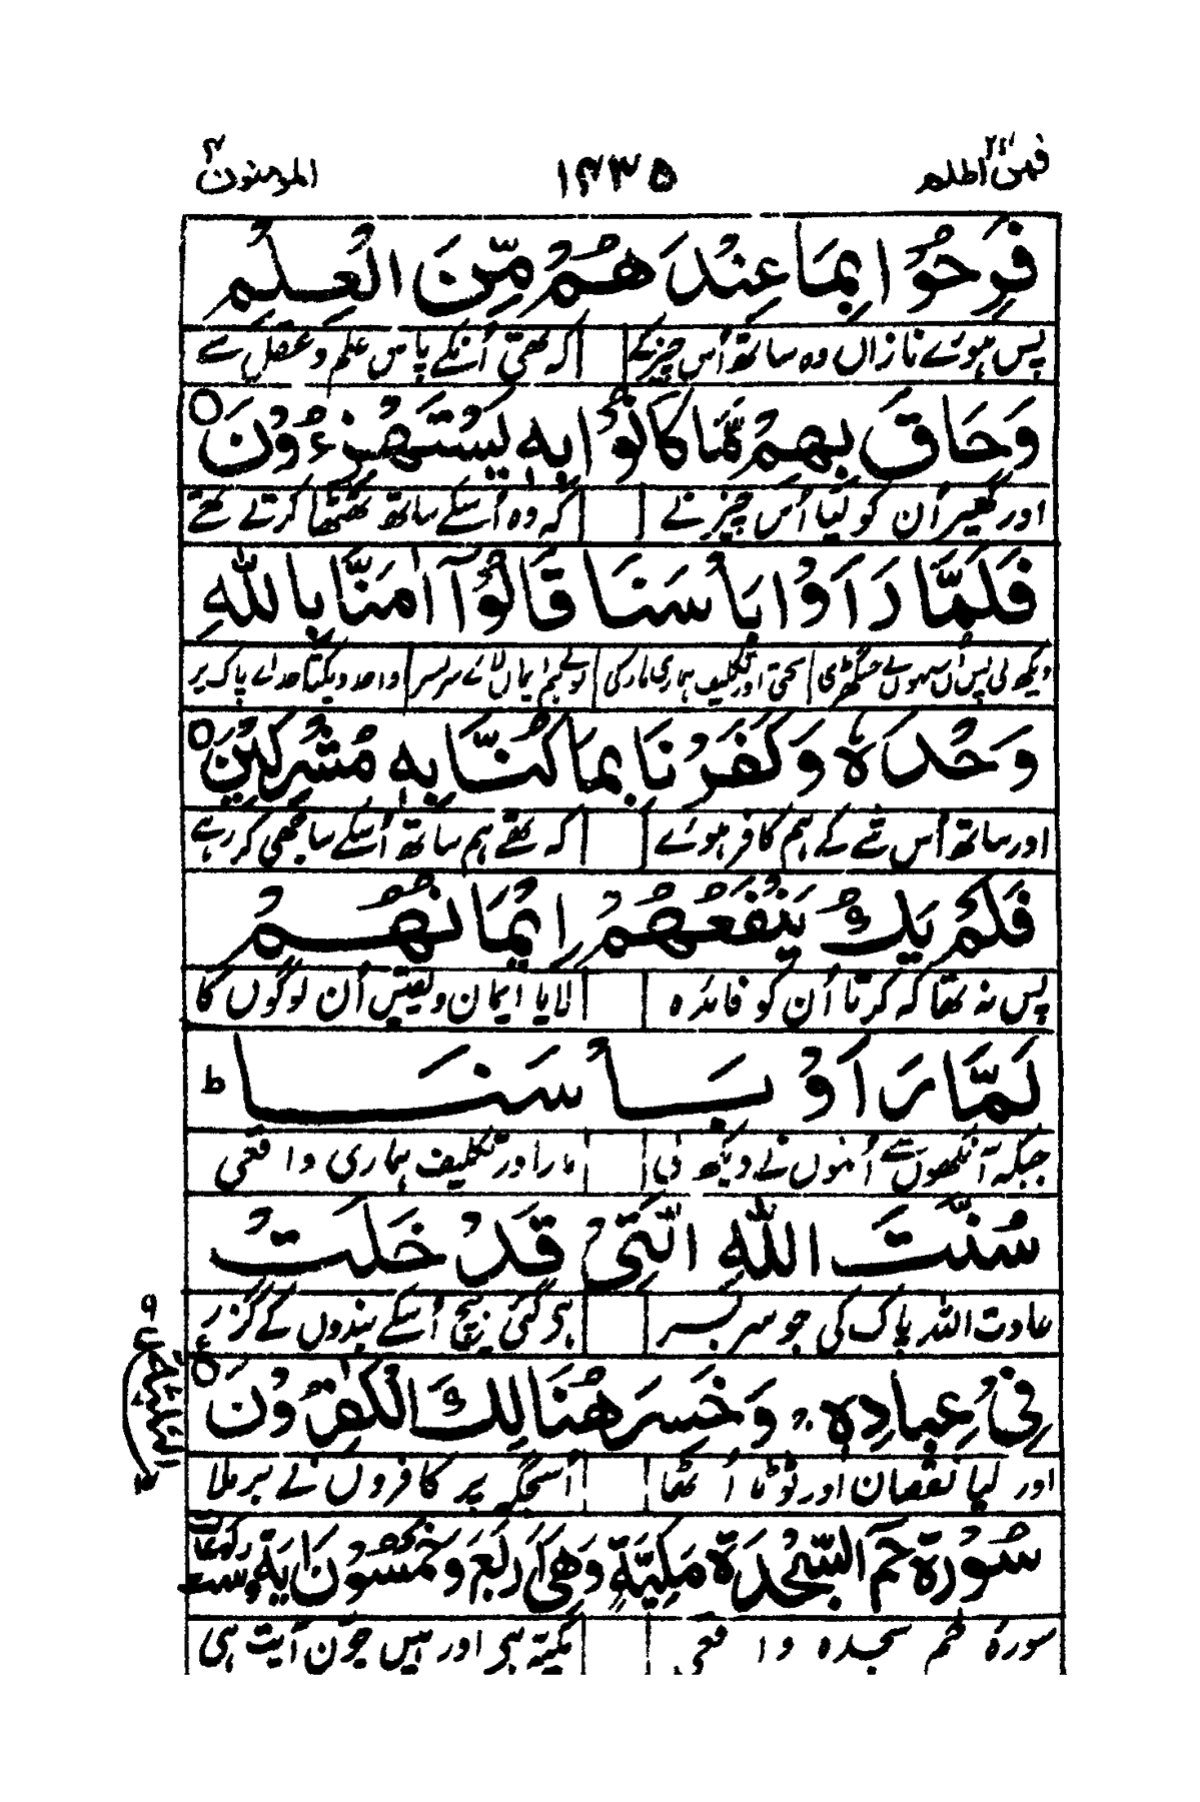 فمن اظلم ۲۴
۱۴۳۵
المؤمنون ۴۰
فَرِحُوْا بِمَا عِنْدَ هُمْ مِّنَ الْعِلْمِ
پس ہوئے نازاں وہ ساتھ اُس چیز کے کہ تھی اُنکے پاس علم و عقل سے
وَحَاقَ بِهِمْ مَّا كَانُوْا بِهٖ يَسْتَهْزِءُوْنَ ○
اور گھیر اُن کو لیا اُس چیز نے کہ وہ اُسکے ساتھ ٹھٹھا کرتے تھے
فَلَمَّا رَاَوْا بَاْسَنَا قَالُوْٓا اٰمَنَّا بِاللّٰهِ
دیکھ لی پس اُنہوں نے جس گھڑی سختی اور تکلیف ہماری مار کی بولے ہم ایمان لائے سر بسر واحد و یکتا خدائے پاک پر
وَحْدَهٗ وَكَفَرْنَا بِمَا كُنَّا بِهٖ مُشْرِكِيْنَ ○
اور ساتھ اُس شے کے ہم کافر ہوئے کہ تھے ہم ساتھ اُسکے ساجھی کر رہے
فَلَمْ يَكُ يَنْفَعُهُمْ اِيْمَانُهُمْ
پس نہ تھا کہ کرتا اُن کو فائدہ لایا ایمان و یقیں اُن لوگوں کا
لَمَّا رَاَوْ بَاْسَنَا ط
جبکہ آنکھوں سے اُنہوں نے دیکھ لی مار اور تکلیف ہماری واقعی
سُنَّتَ اللّٰهِ الَّتِيْ قَدْ خَلَتْ
عادت اللہ پاک کی جو سر بسر ہو گئی بیچ اُسکے بندوں کے گزر
فِيْ عِبَادِهٖ ۚ وَخَسِرَ هُنَالِكَ الْكٰفِرُوْنَ ○
اور لیا نقصان اور ٹوٹا اُٹھا اُسجگہ پر کافروں نے برملا
سُوْرَةُ حٰمٓ السَّجْدَةِ مَكِّيَّةٌ وَهِيَ اَرْبَعٌ وَّخَمْسُوْنَ اٰيَةً وست رکوعات
سورۂ حٰم سجدہ واقعی مکیّہ ہی اور ہیں چوّن آیت ہی